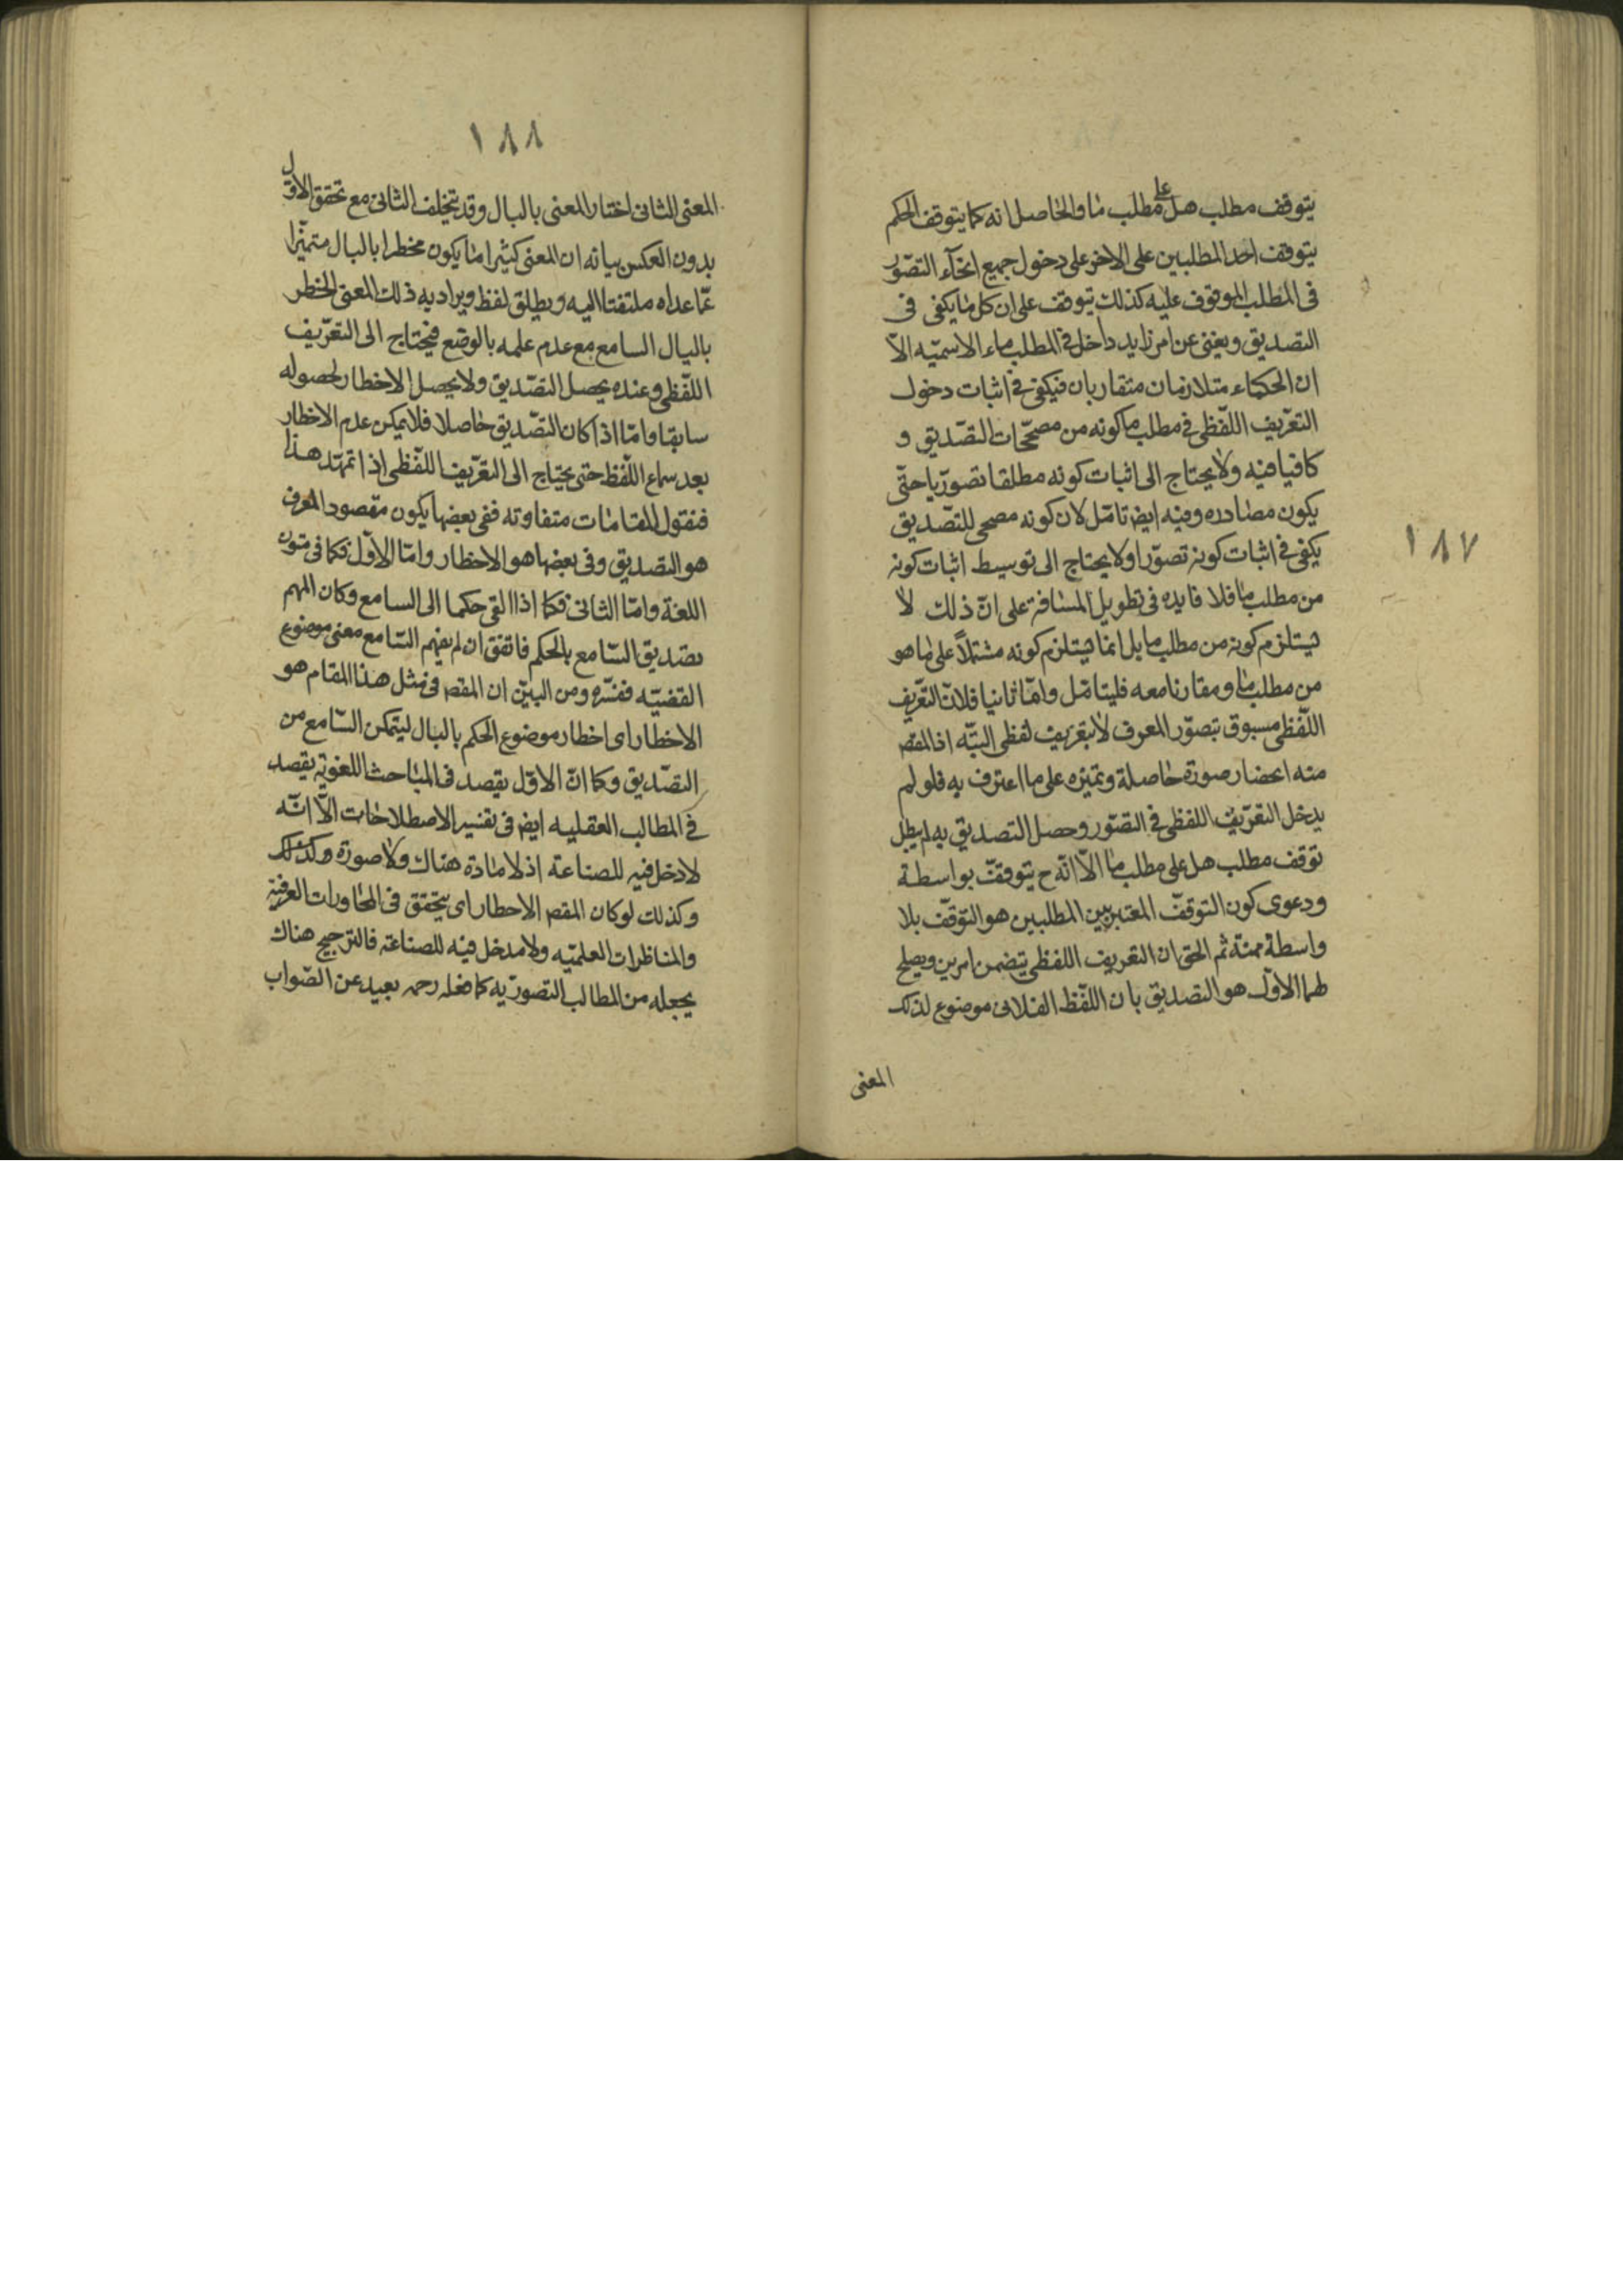 ١٨٧
يتوقف مطلب هل على مطلب ما والحاصل انه كما يتوقف الحكم
يتوقف احد المطلبين على الاخر على دخول جميع انحآء التصّور
فى المطلب الموقوف عليه كذلك يتوقف على ان كل ما يكفى فى
التصديق ويغنى عن امر زايد داخل فى المطلب ماء الاسميّه الاّ
ان الحكماء متلازمان متقاربان فيكفى فى اثبات دخول
التعّريف اللّفظى فى مطلب ما كونه من مصحّحات التصّديق و
كافيا فيه ولا يحتاج الى اثبات كونه مطلقا تصورّيا حتّى
يكون مصادره وفيه ايضا تامّل لان كونه مصحى للتصّديق
يكفى فى اثبات كونه تصوّرا ولا يحتاج الى توسيط اثبات كونه
من مطلب ما فلا فايده فى تطويل المسافة على انّ ذلك لا
يستلزم كونه من مطلب ما بل انما يستلزم كونه مشتملاً على ما هو
من مطلب ما ومقارنا معه فليتامّل وامّا ثانيا فلانّ التعّريف
اللّفظى مسبوق بتصوّر المعرف لا بتعريف لفظى البتّه اذ المقص
منه احضار صورة حاصلة وتميزه على ما اعترف به فلو لم
يدخل التعّريف اللفظى فى التصّور وحصل التصديق به لم يبطل
توقف مطلب هل على مطلب ما الاّ انّه ح يتوقفّ بواسطة
ودعوى كون التوقفّ المعتبر بين المطلبين هو التوقّف بلا
واسطة ممنّة ثم الحق ان التعريف اللفظى يتضمن امرين ويصلح
لهما الاوّل هو التصديق بان اللّفظ الفلانى موضوع لذلك
المعنى
١٨٨
المعنى الثانى اختار المعنى بالبال وقد يتخلف الثانى مع تحقق الاوّل
بدون العكس بيانه ان المعنى كثيرا ما يكون مخطرا بالبال متميّزا
عمّا عداه ملتفتا اليه ويطلق لفظ ويراد به ذلك المعنى المخطر
بالبال السامع مع عدم علمه بالوضع فيحتاج الى التعّريف
اللّفظى وعنده يحصل التصّديق ولا يحصل الاخطار لحصوله
سابقا وامّا اذا كان التصّديق حاصلا فلا يمكن عدم الاخطار
بعد سماع اللّفظ حتى يحتاج الى التعّريف اللّفظى اذا تمهّد هذا
فنقول المقامات متفاوته ففى بعضها يكون مقصود المعرف
هو التصديق وفى بعضها هو الاخطار وامّا الاوّل فكما فى متون
اللغة وامّا الثانى فكما اذا القى حكما الى السامع وكان المهم
تصّديق السّامع بالحكم فاتفق ان لم يفهم السّامع معنى موضوع
القضيّه ففسّره ومن البيّن ان المقص فى مثل هذا المقام هو
الاخطار اى اخطار موضوع الحكم بالبال ليتمكن السّامع من
التصّديق وكما انّ الاوّل يقصد فى المباحث اللغويّة يقصد
فى المطالب العقليه ايضا فى تفسير الاصطلاحات الاّ انّه
لا دخل فيه للصناعة اذ لا مادّة هناك ولا صورة وكذلك
وكذلك لو كان المقص الاحطار اى يتحقق فى المحاورات العرفيّة
والمناظرات العلميّه ولا مدخل فيه للصناعة فالترجيح هناك
بجعله من المطالب التصورّيه كما فعله رحمه بعيد عن الصّواب